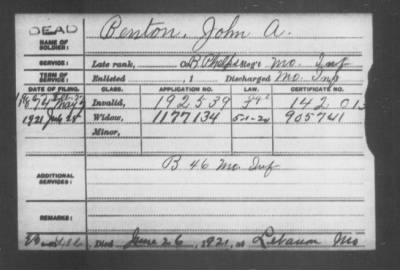 DEAD
NAME OF SOLDIER: Benton, John A.
SERVICE: Late rank, Co B Phelps Reg't Mo. Inf
TERM OF SERVICE: Enlisted , 1 Discharged Mo. Inf
DATE OF FILING. CLASS. APPLICATION NO. LAW. CERTIFICATE NO.
Invalid, 192539 142 013
1921 July 25 Widow, 1177134 5-1-20 905741
Minor,
ADDITIONAL SERVICES: B 46 Mo. Inf
REMARKS:
Died June 26, 1921, at Lebanon Mo